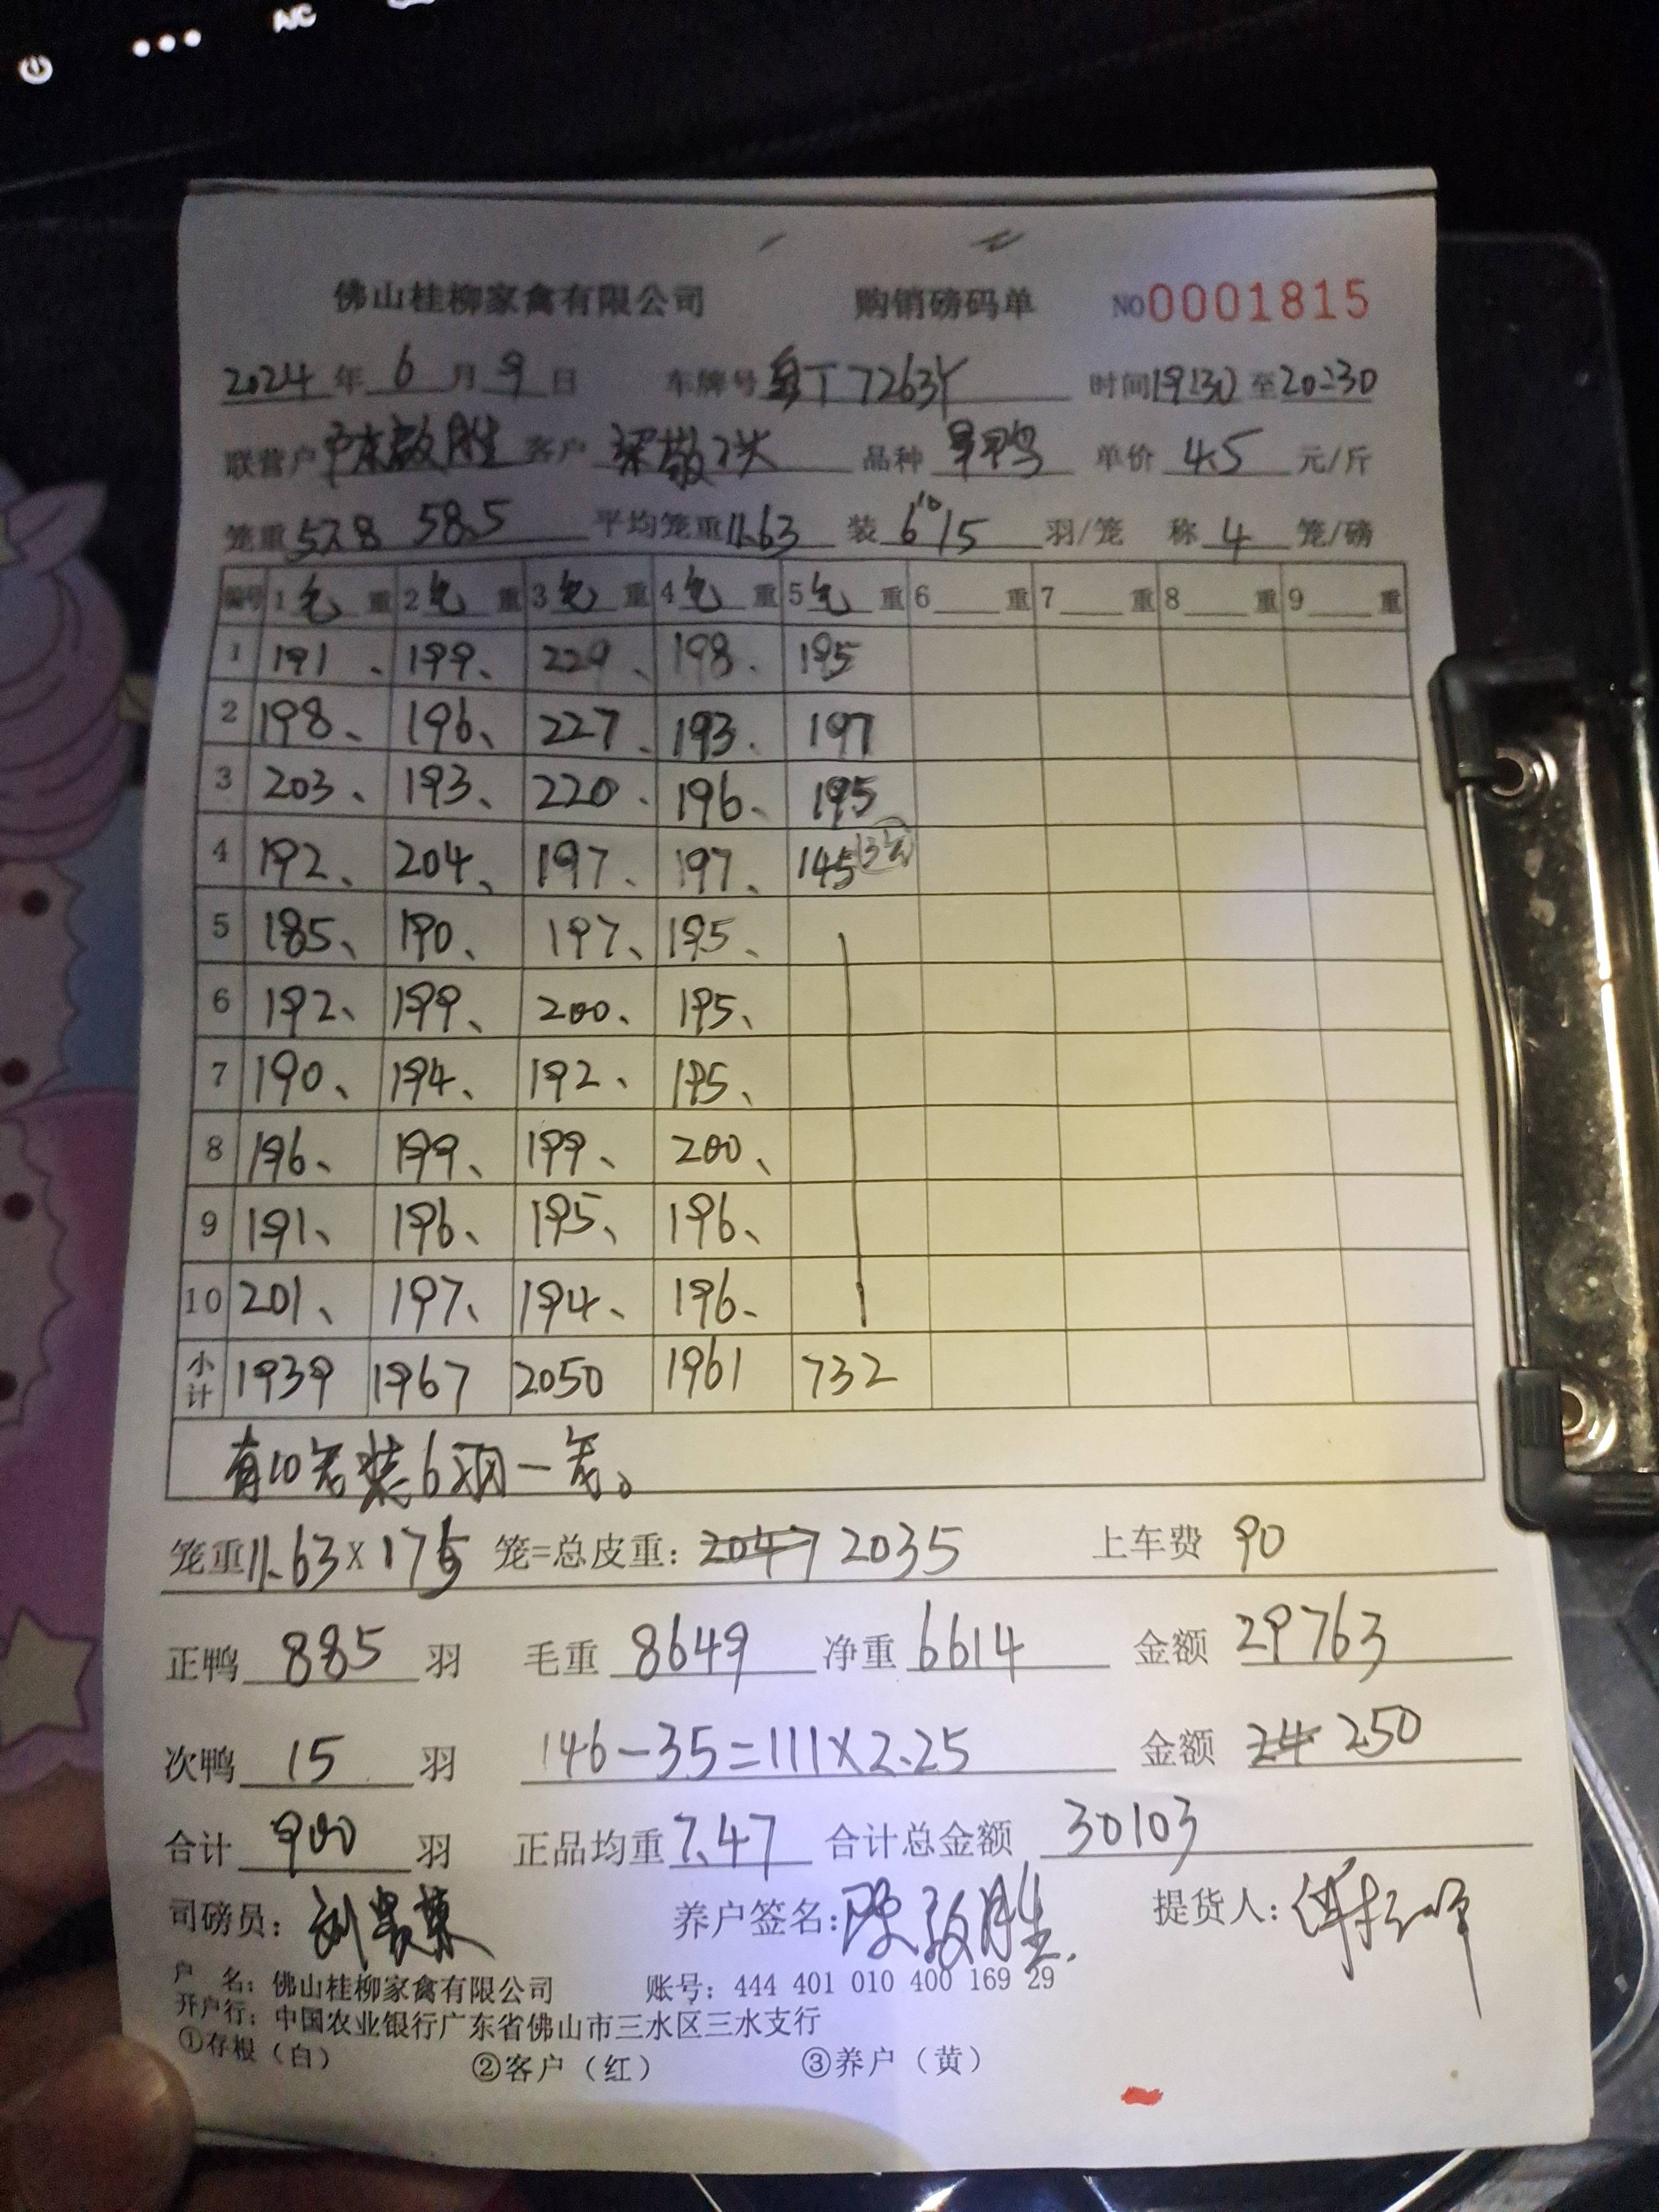 A/C
佛山桂柳家禽有限公司 购销磅码单 NO 0001815
2024 年 6 月 9 日 车牌号 粤T 7263Y 时间 19:30 至 20:30
联营户 陈敬胜 客户 品种 单价 4.5 元/斤
笼重 57.8 58.5 平均笼重 11.63 装 6 10 15 羽/笼 称 4 笼/磅
编号 1 毛 重 2 毛 重 3 毛 重 4 毛 重 5 毛 重 6 重 7 重 8 重 9 重
1 191、 199、 229、 198、 195
2 198、 196、 227、 193、 197
3 203、 193、 220、 196、 195
4 192、 204、 197、 197、 145 (3笼)
5 185、 190、 197、 195、
6 192、 199、 200、 195、
7 190、 194、 192、 195、
8 196、 199、 199、 200、
9 191、 196、 195、 196、
10 201、 197、 194、 196、
小计 1939 1967 2050 1961 732
有10笼装6羽一笼。
笼重 11.63 x 175 笼=总皮重: 2047 2035 上车费 90
正鸭 885 羽 毛重 8649 净重 6614 金额 29763
次鸭 15 羽 146-35=111×2.25 金额 24 250
合计 900 羽 正品均重 7.47 合计总金额 30103
司磅员: 养户签名: 陈敬胜. 提货人:
户 名: 佛山桂柳家禽有限公司 账号: 444 401 010 400 169 29
开户行: 中国农业银行广东省佛山市三水区三水支行
①存根（白） ②客户（红） ③养户（黄）